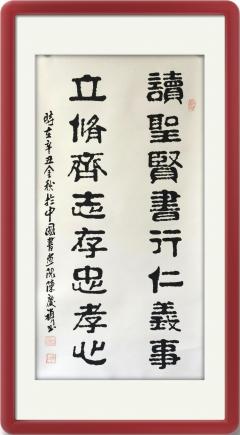 讀聖賢書行仁義事
立脩齊志存忠孝心
時在辛丑金秋於中國書畫院陳慶